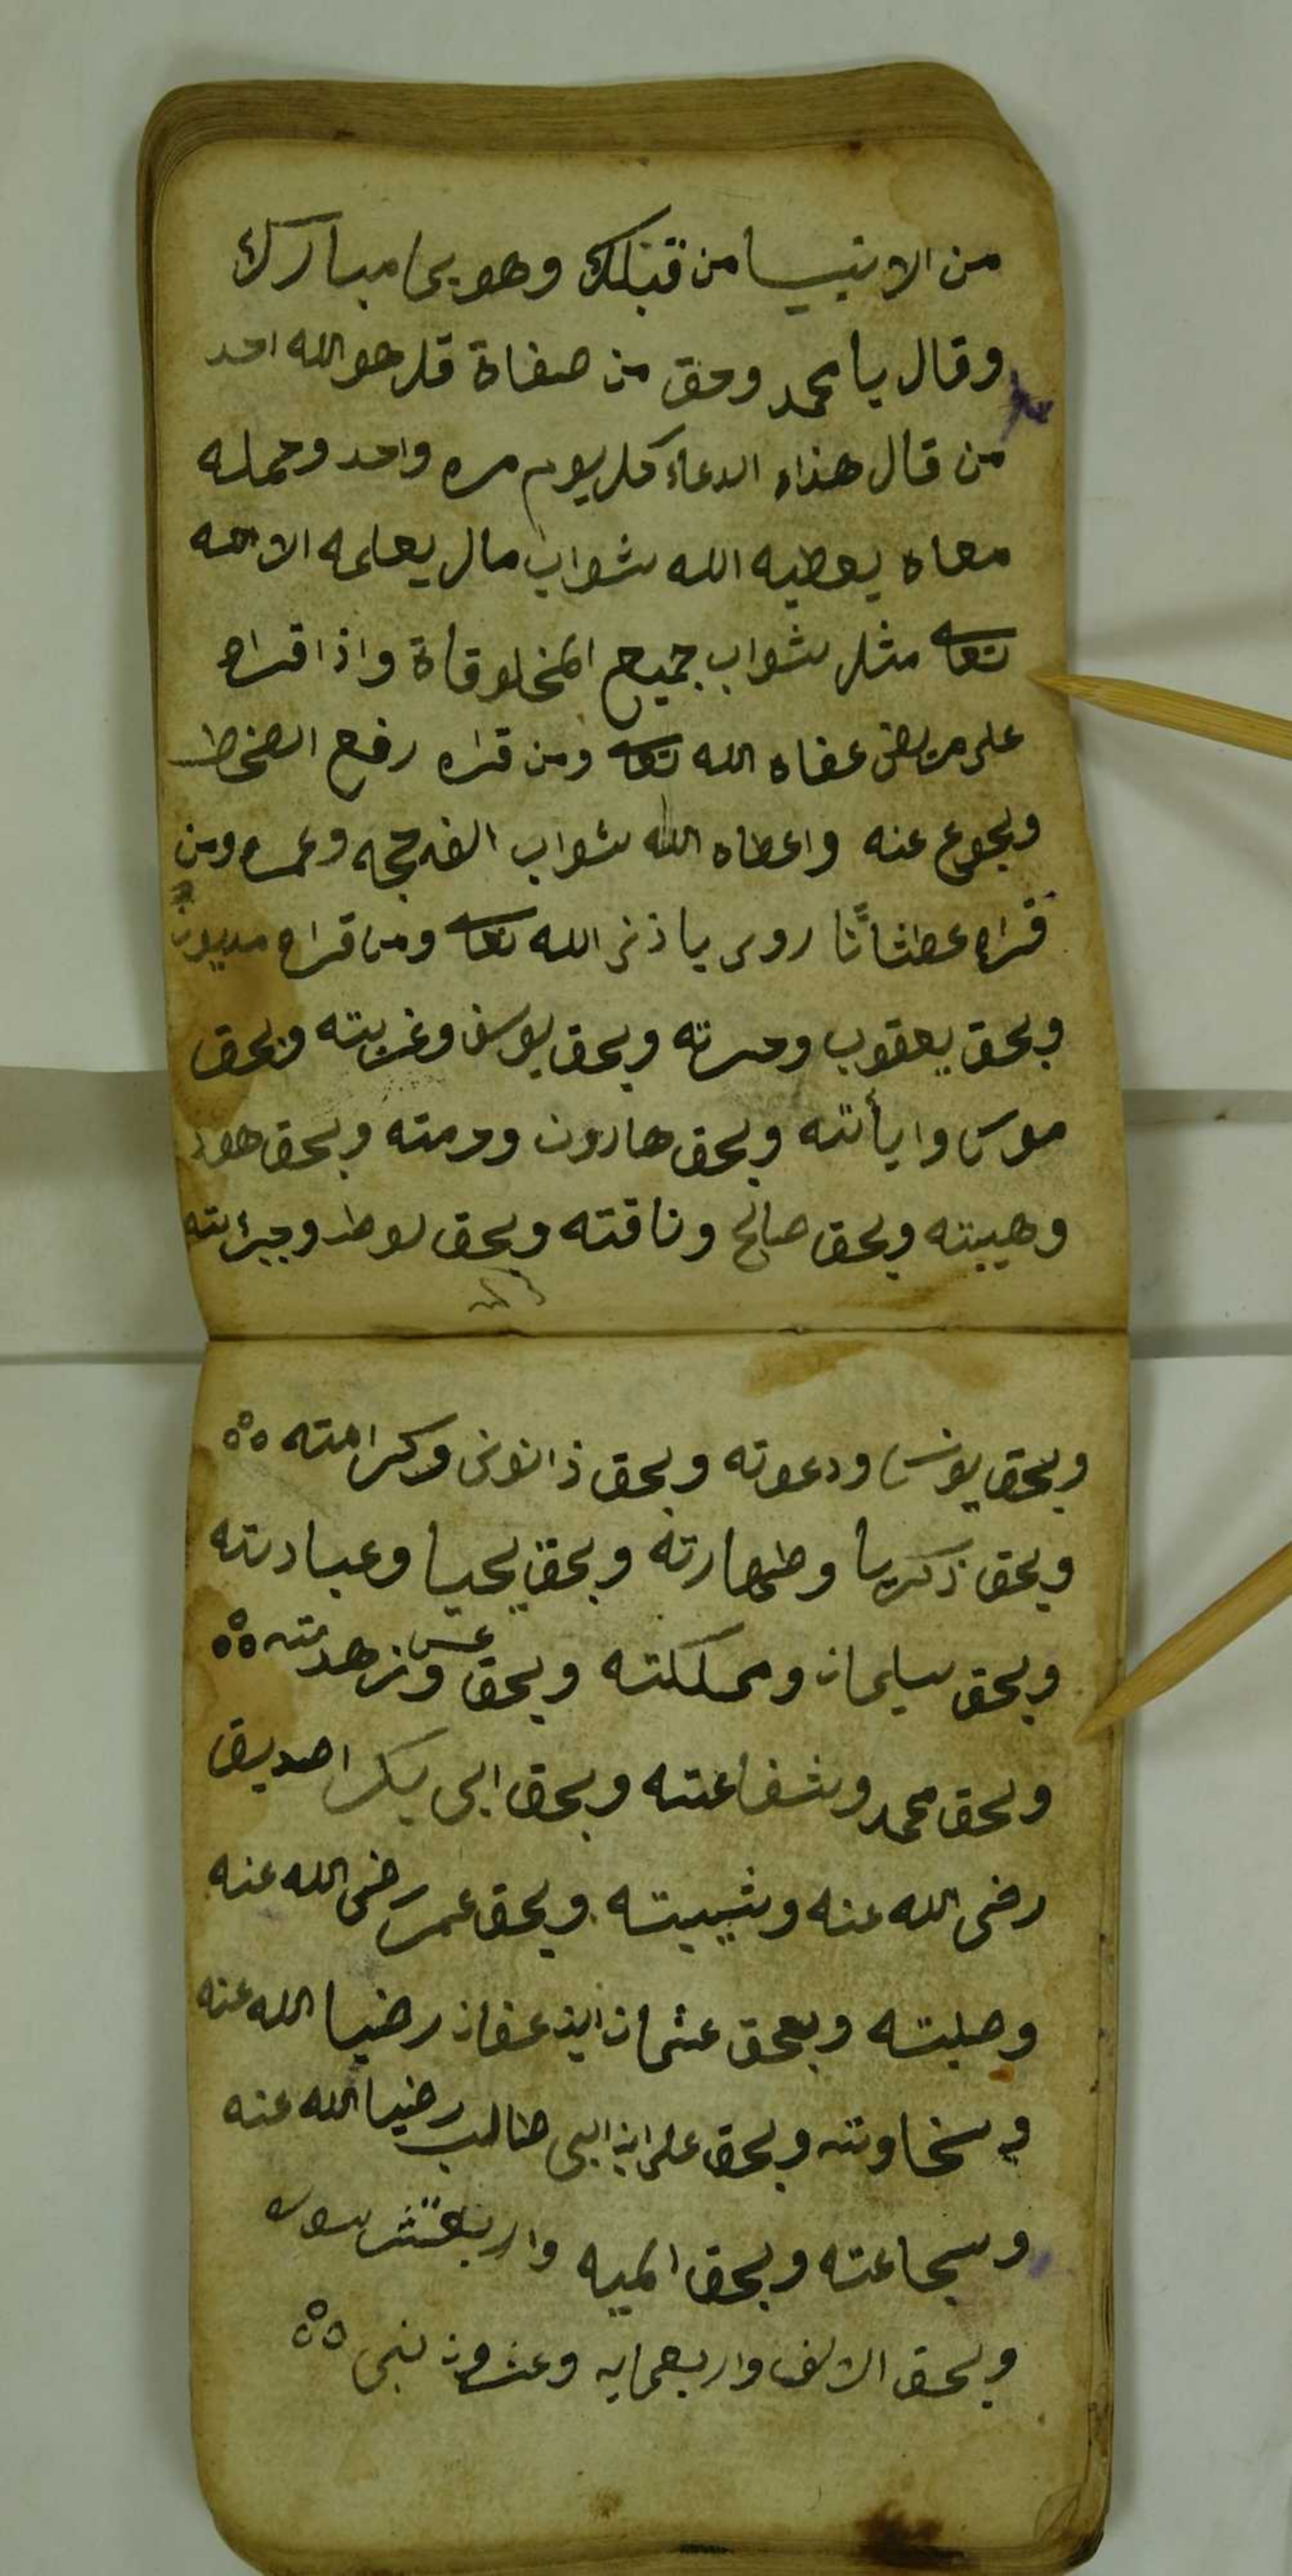 من الانبيا من قبلك وهو يحا مبارك
وقال يا محمد وحق من صفاة قل هو الله احد
من قال هذاء الدعاء كل يوم مره واحد وحمله
معاه يعطيه الله ثواب مال يعلمه الا الله
تعا مثل ثواب جميع المخلوقاة واذا قراه
على مريض عفاه الله تعا ومن قراه رفع الضخط
ويجوع عنه واعطاه الله ثواب الف حجه وعمره ومن
قراه عطشاناً روى ياذن الله تعا ومن قراه مديون
وبحق يعقوب وحسرته وبحق يوسف وغربته وبحق
موسى وايأته وبحق هارون وحرمته وبحق هود
وهيبته وبحق صالح وناقته وبحق لوط وجيرته
وبحق يونس ودعوته وبحق ذانونى وكرامته
وبحق زكريا وطهارته وبحق يحيا وعبادته
وبحق سليمان ومملكته وبحق عسى وزهدته
وبحق محمد وشفاعته وبحق ابى بكر اصديق
رضى الله عنه وشيبته وبحق عمر رضى الله عنه
وصلبته وبعحق عثمان ابن عفان رضيا الله عنه
وسخاوته وبحق على ابن ابى طالب رضيا الله عنه
وسجاعته وبحق الميه واربعتشر سوره
وبحق الالف واربعمايه وعشرون نبى